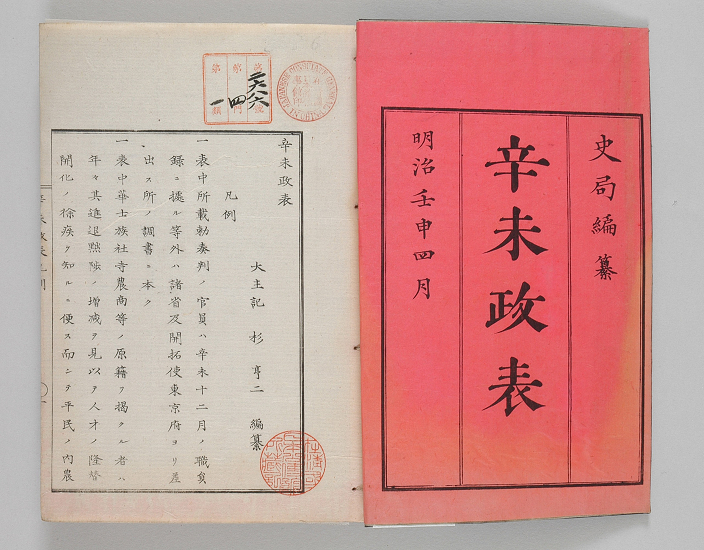 史局編纂
辛未政表
明治壬申四月
辛未政表
大主記 杉亨二 編纂
凡例
一表中所載勅奏判ノ官員ハ辛未十二月ノ職員
録ニ據ル等外ハ諸省及開拓使東京府ヨリ差
出ス所ノ調書ニ本ク
一表中華士族社寺農商等ノ原籍ヲ掲クル者ハ
年々其進退黜陟ノ増減ヲ見以テ人才ノ隆替
開化ノ徐疾ヲ知ルニ便ス而シテ平民ノ内農
一四二六八六